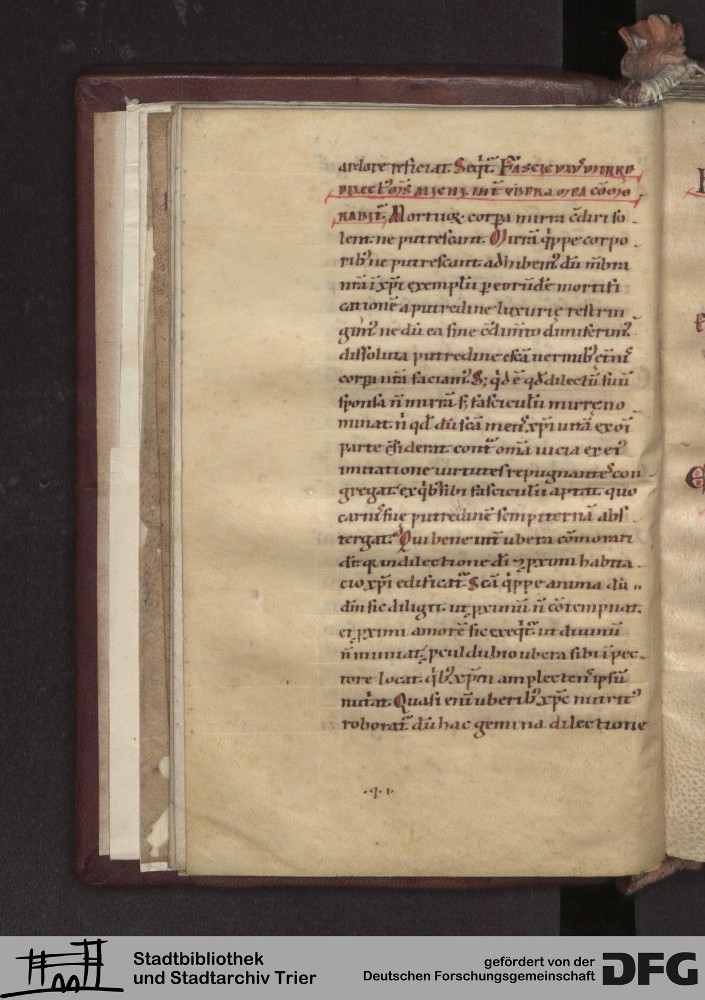 ardore reficiat. Seqit̄. Fascicvlvs mirre
dilectꝰ mͣs michi. int̄ vbera mea cōmo
rabit̄. Mortuoꝝ corpa mirra c̄diri so
lent. ne putrescant. Mirrā q̄ppe corpo
ribꝰ ne putrescant adhibemꝰ. dū mēbra
nr̄a ī xp̄i exemplū
cationē a putredine luxurię restrin
gimꝰ ne
dissoluta putredine escā uermibꝰ
corpa nr̄a faciamꝰ. S; qd̄ ē qd̄ dilectū suū
sponsa n̄ mirrā s; fasciculū mirrę no
minat. n̄ qd̄ dū scā mens xp̄i uitā ex oī
parte c̄siderat. cont̄ om̄a uicia ex eiꝰ
imitatione uirtutes repugnantes con
gregat. ex qͥbꝰ sibi fasciculū aptat. quo
carnis suę putredinē sempiternā abs
tergat. Qui bene int̄ ubera cōmorari
dr̄. q̄ in dilectione dī ⁊ pximi habita
cio xp̄i edificat̄. Scā q̄ppe anima dū
dm̄ sic diligit. ut pximū n̄ cōtempnat.
et pximi amorē sic exeqit̄ ut diuinū
n̄ minuat. pcul dubio ubera sibi ī pec
tore locat. qͥbꝰ xp̄m amplectens ipsū
nutrit. Quasi eni uberibꝰ xp̄c nutritꝰ
roborat̄. dū hac gemina dilectione
.q. i.
Stadtbibliothek
und Stadtarchiv Trier
gefördert von der
Deutschen Forschungsgemeinschaft
DFG